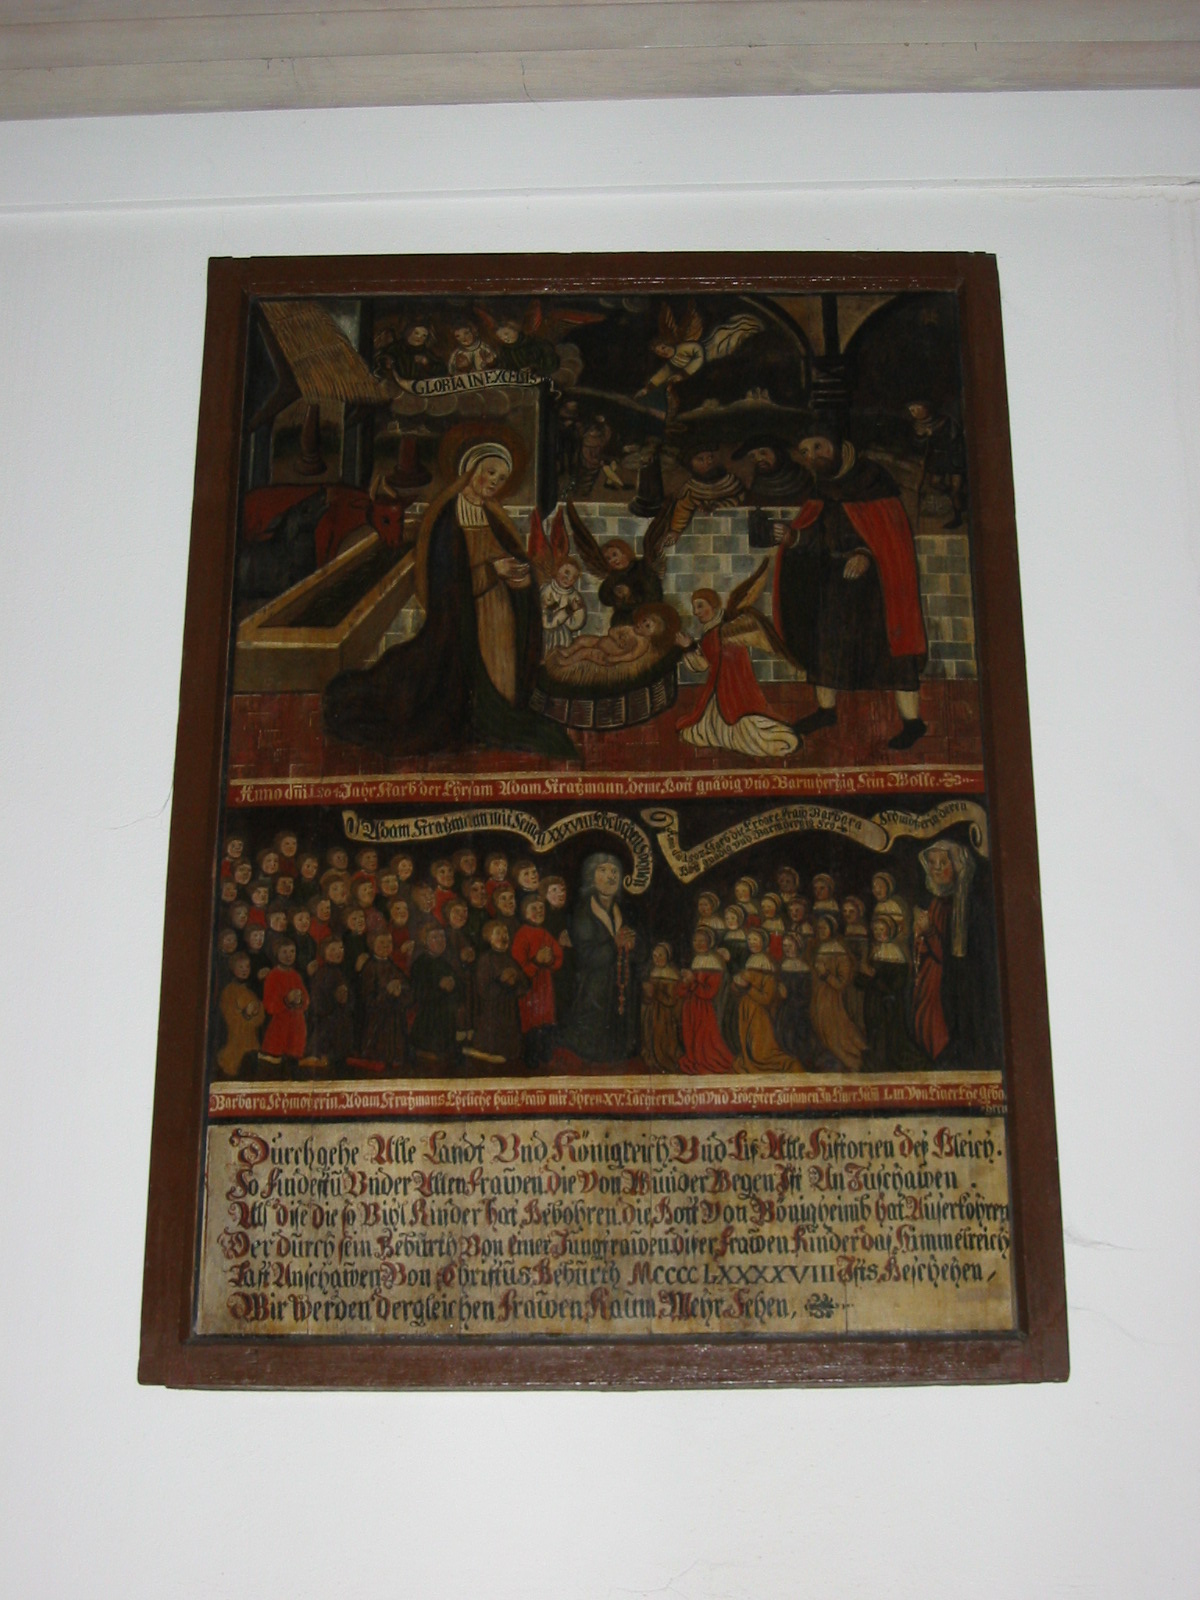 GLORIA IN EXCELSIS
Anno dm̄i Jahr starb der Ehrsam Adam Stratzmann, deme Gott gnädig vnd Barmhertzig Sein Wolle.
Adam Stratzmann mit Seinen XXXVIII Ehelichen
starb die Erbare Fraw Barbara
Gott gnädig vnd Barmhertzig Seÿ
Schmotzerin deren
Barbara Schmotzerin, Adam Stratzmans Eheliche Haus fraw mit Ihren XV. Töchtern, Söhn vnd Töchter Zusamen In Einer Sum̄ LIII Von Einer Ehe gebo
hren
Durchgehe Alle Landt Vnd Königreich, Vnd Lis Alle Historien des Gleich.
So findestu Vnder Allen frawen, die Von Wunder Wegen Ist An Zuschawen.
Als dise die so Vihl Kinder hat, Gebohren, die, Gott Von Bönigheimb hat Auserkohren
Der durch sein Geburth Von Einer Jungfrawen, diser frawen Kinder das Himmelreich
Last Anschawen, Von Christus Geburth MCCCCLXXXXVIII Ists, Geschehen,
Wir werden dergleichen frawen, Kaum, Mehr, Sehen,